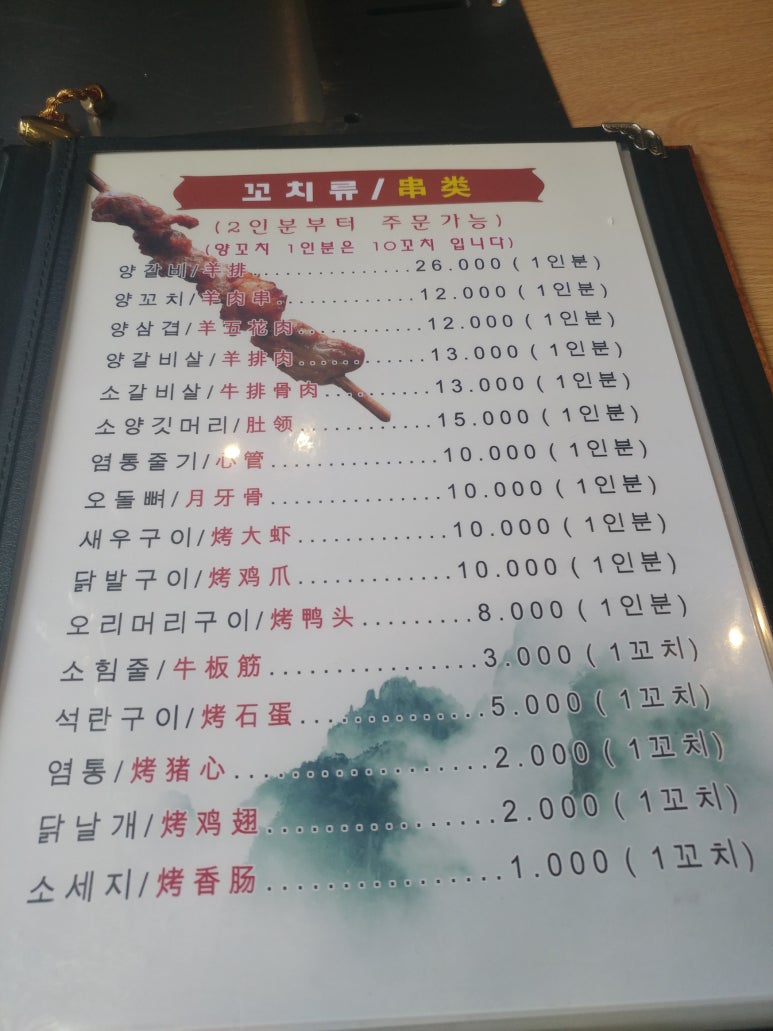 꼬치류/串类
(2인분부터 주문가능)
(양꼬치 1인분은 10꼬치 입니다)
양갈비/羊排................26.000 ( 1인분)
양꼬치/羊肉串..............12.000 ( 1인분)
양삼겹/羊五花肉............12.000 ( 1인분)
양갈비살/羊排肉............13.000 ( 1인분)
소갈비살/牛排骨肉..........13.000 ( 1인분)
소양깃머리/肚领.............15.000 ( 1인분)
염통줄기/心管...............10.000 ( 1인분)
오돌뼈/月牙骨...............10.000 ( 1인분)
새우구이/烤大虾.............10.000 ( 1인분)
닭발구이/烤鸡爪.............10.000 ( 1인분)
오리머리구이/烤鸭头.........8.000 ( 1인분)
소힘줄/牛板筋................3.000 ( 1꼬치)
석란구이/烤石蛋..............5.000 ( 1꼬치)
염통/烤猪心..................2.000 ( 1꼬치)
닭날개/烤鸡翅................2.000 ( 1꼬치)
소세지/烤香肠................1.000 ( 1꼬치)